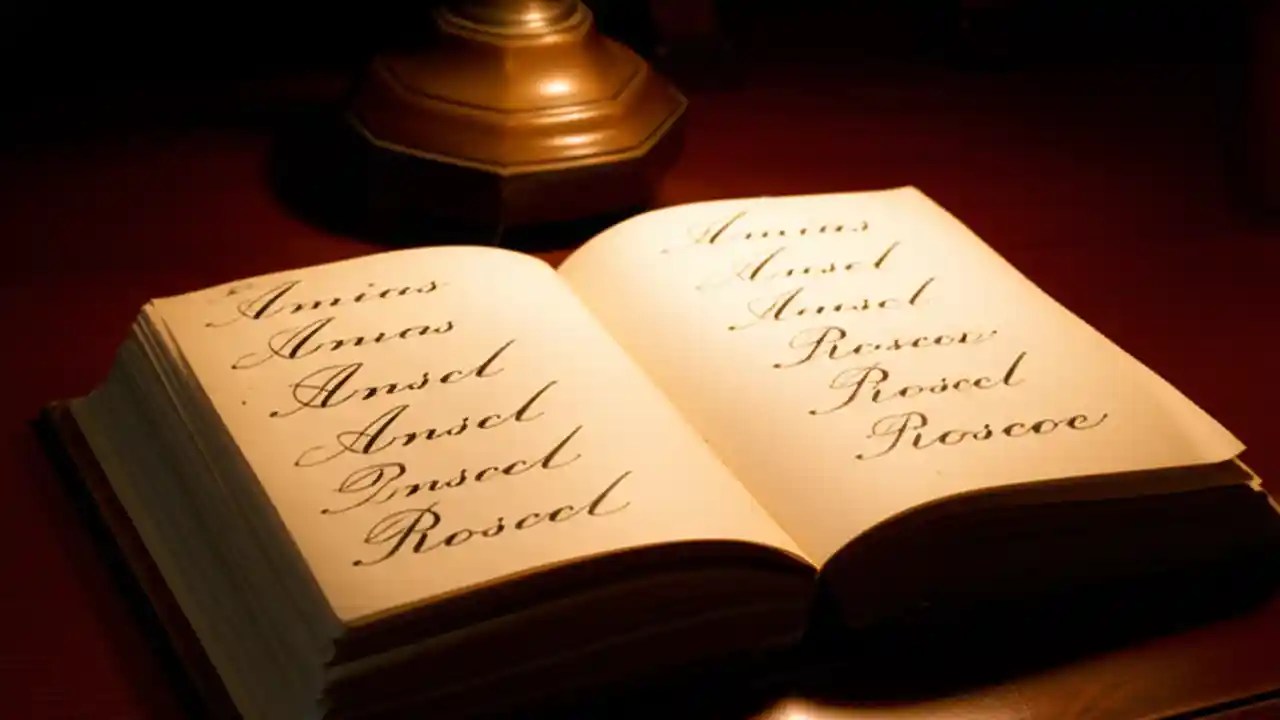 Amias
Amas
Ansel
Ansel
Pnscel
Roscel
Amias
Ansel
Amsel
Roscoe
Roscel
Roscoe